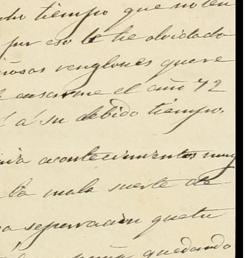 tiempo que no ten
por eso le he olvidado
renglones que re
casarme el año 72
a su debido tiempo.
acontecimientos muy
la mala suerte de
separacion que tu
quedando